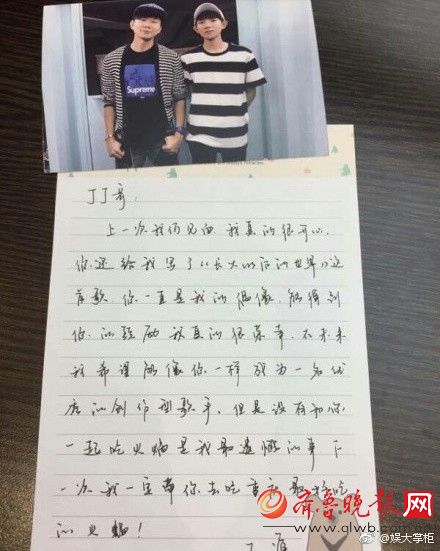 Supreme
JJ哥：
上一次我们见面我真的很开心，
你还给我写了《长大以后的世界》这
首歌。你一直是我的偶像，能得到
你的鼓励我真的很荣幸，在未来
我希望能像你一样成为一名优
质的创作型歌手。但是没有和你
一起吃火锅是我最遗憾的事，下
一次我一定带你去吃重庆最好吃
的火锅！
齐鲁晚报网
www.qlwb.com.cn
@娱大掌柜